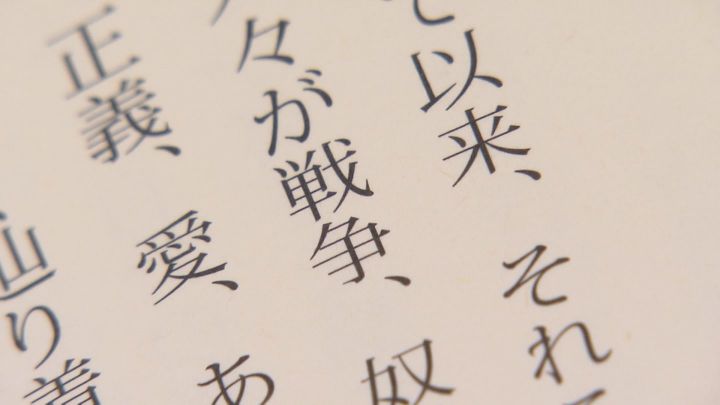 以来、それ
々が戦争、奴
正義、愛、あ
辿り着